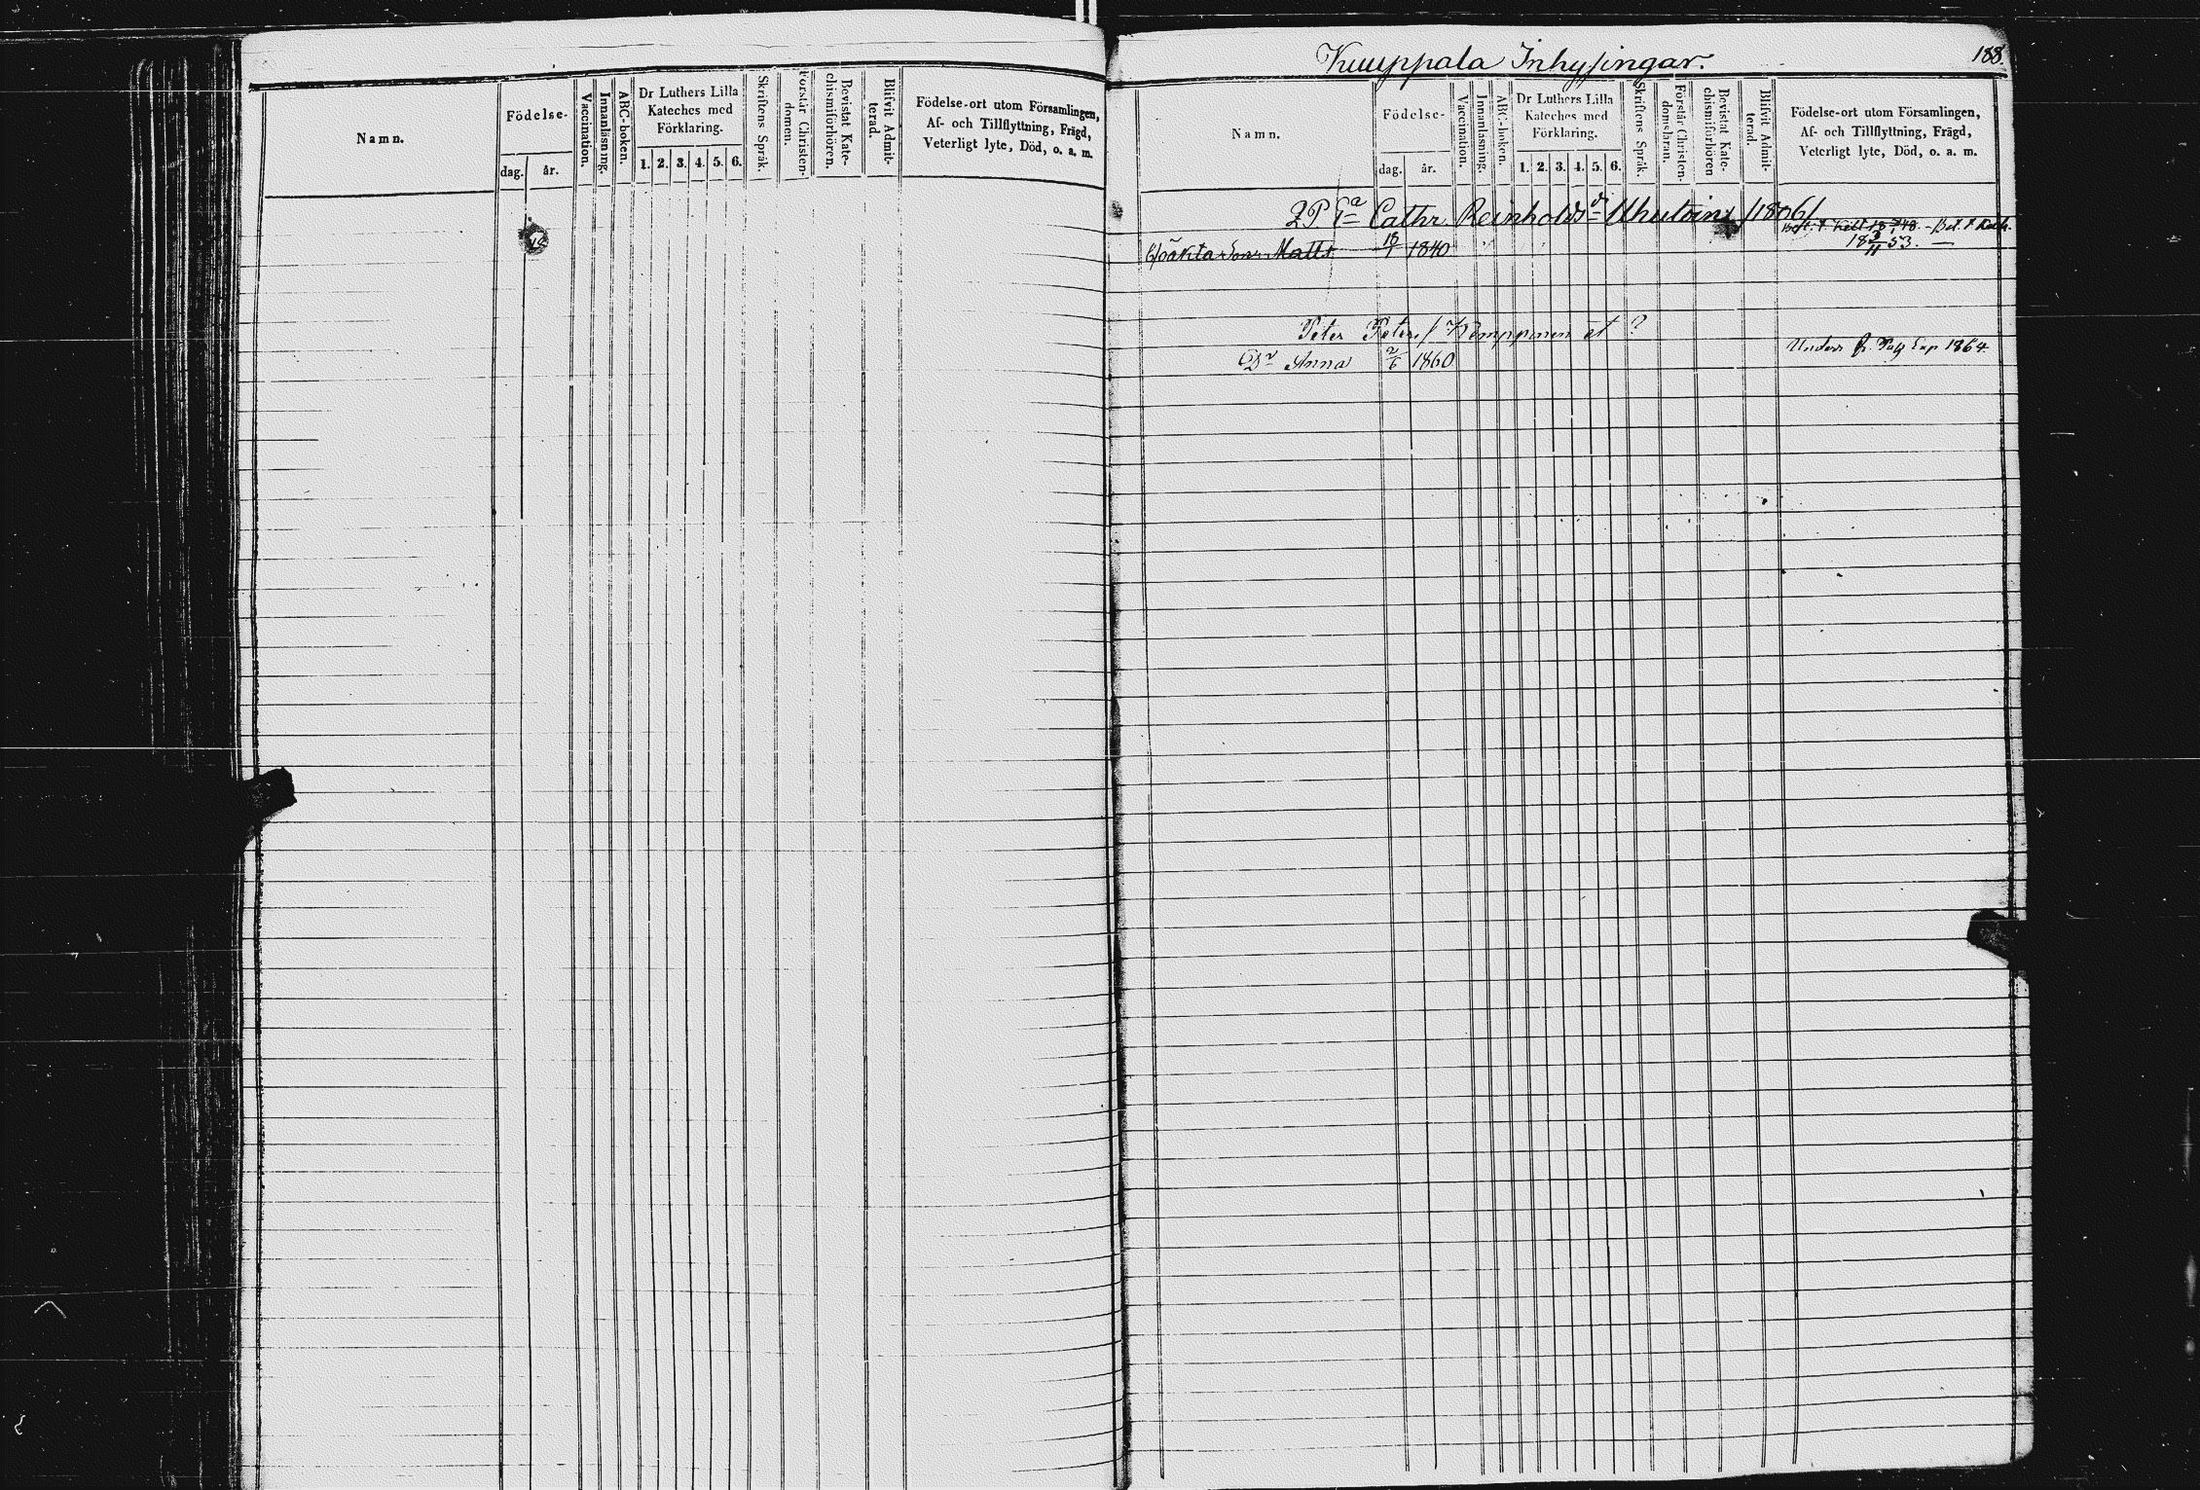 Namn.
Födelse-
dag. år.
Vaccination.
Innanläsning.
ABC-boken.
Dr Luthers Lilla
Kateches med
Förklaring.
1. 2. 3. 4. 5. 6.
Skriftens Språk.
Förstår Christen-
domen.
Bevistat Kate-
chismiförhören.
Blifvit Admit-
terad.
Födelse-ort utom Församlingen,
Af- och Tillflyttning, Frägd,
Veterligt lyte, Död, o. a. m.
Kuuppala Inhysingar.
188.
Namn.
Födelse-
dag. år.
Vaccination.
Innanläsning.
ABC-boken.
Dr Luthers Lilla
Kateches med
Förklaring.
1. 2. 3. 4. 5. 6.
Skriftens Språk.
Förstår Christen-
domsläran.
Bevistat Kate-
chismiförhören
Blifvit Admit-
terad.
Födelse-ort utom Församlingen,
Af- och Tillflyttning, Frägd,
Veterligt lyte, Död, o. a. m.
Cathr. Reinholds dr /1806/
Oäkta Son Matts 18/1 1840
18 3/11 53.
Peter Peters/ Kemppinen et ?
Dr Anna 2/6 1860
Exp 1864.